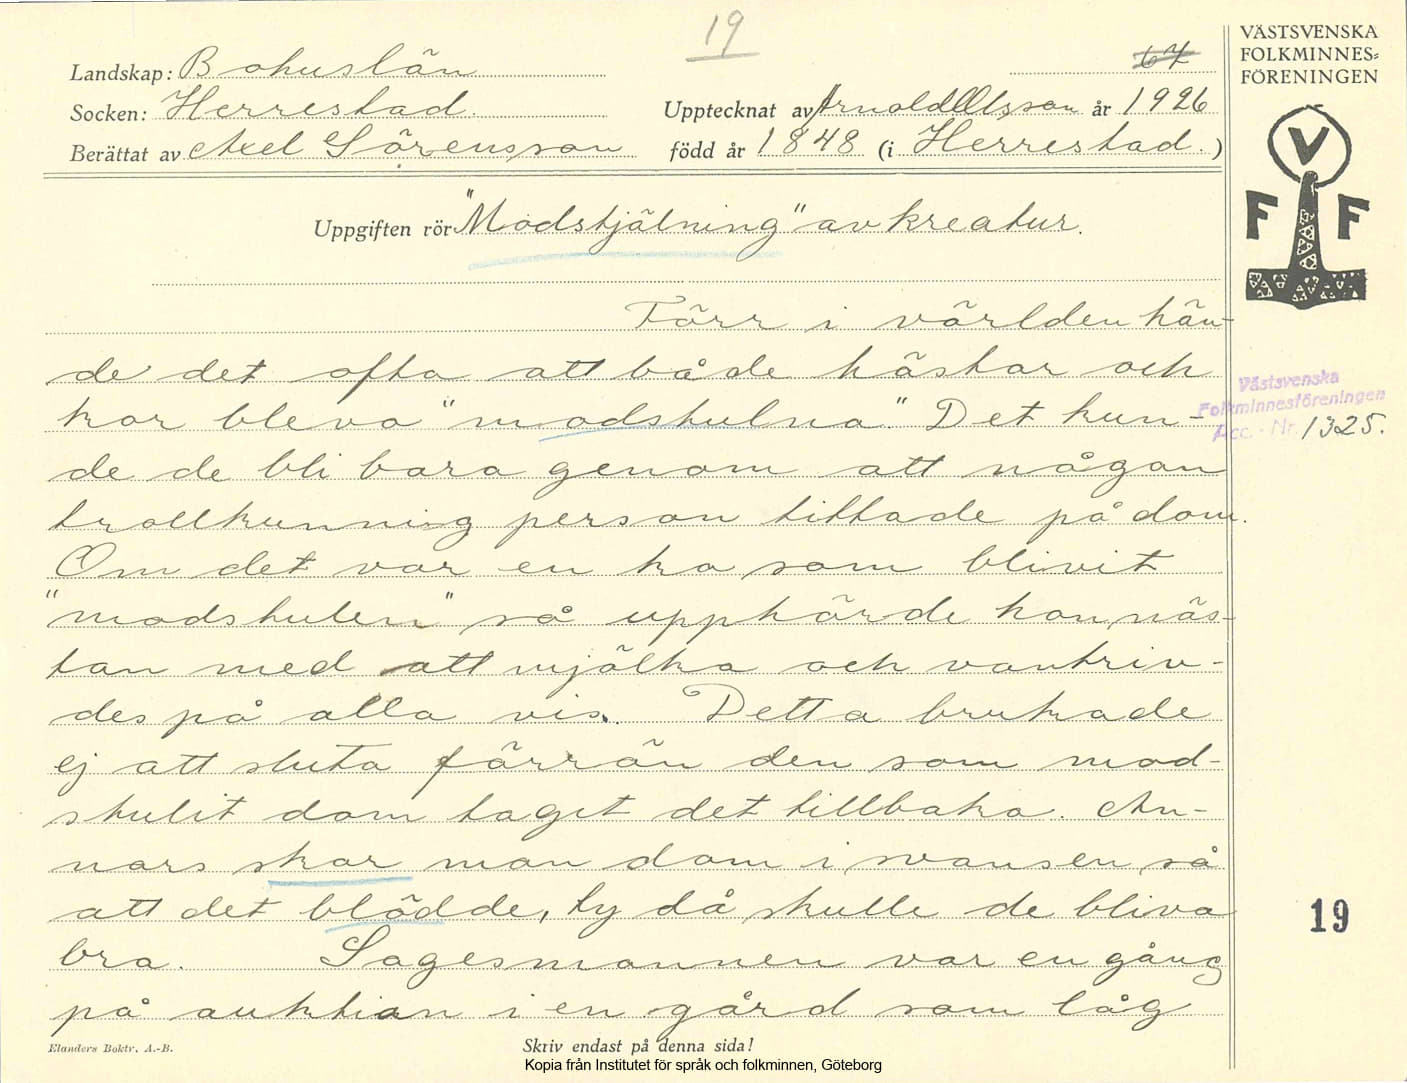 19
67
VÄSTSVENSKA
FOLKMINNES=
FÖRENINGEN
Landskap: Bohuslän
Socken: Herrestad. Upptecknat av Arnold Olsson år 1926
Berättat av Axel Sörensson född år 1848 (i Herrestad.)
V
F F
Uppgiften rör "Modstjälning" av kreatur.
Förr i världen hän-
de det ofta att både hästar och
kor blevo "modstulna". Det kun-
de de bli bara genom att någon
trollkunnig person tittade på dom.
Om det var en ko som blivit
"modstulen" så upphörde hon näs-
tan med att mjölka och vantriv-
des på alla vis. Detta brukade
ej att sluta förrän den som mod-
stulit dom taget det tillbaka. An-
nars skar man dom i svansen så
att det blödde, ty då skulle de bliva
bra. Sagesmannen var en gång
på auktion i en gård som låg
Västsvenska
Folkminnesföreningen
Acc. - Nr. 1325.
19
Elanders Boktr. A.-B.
Skriv endast på denna sida!
Kopia från Institutet för språk och folkminnen, Göteborg